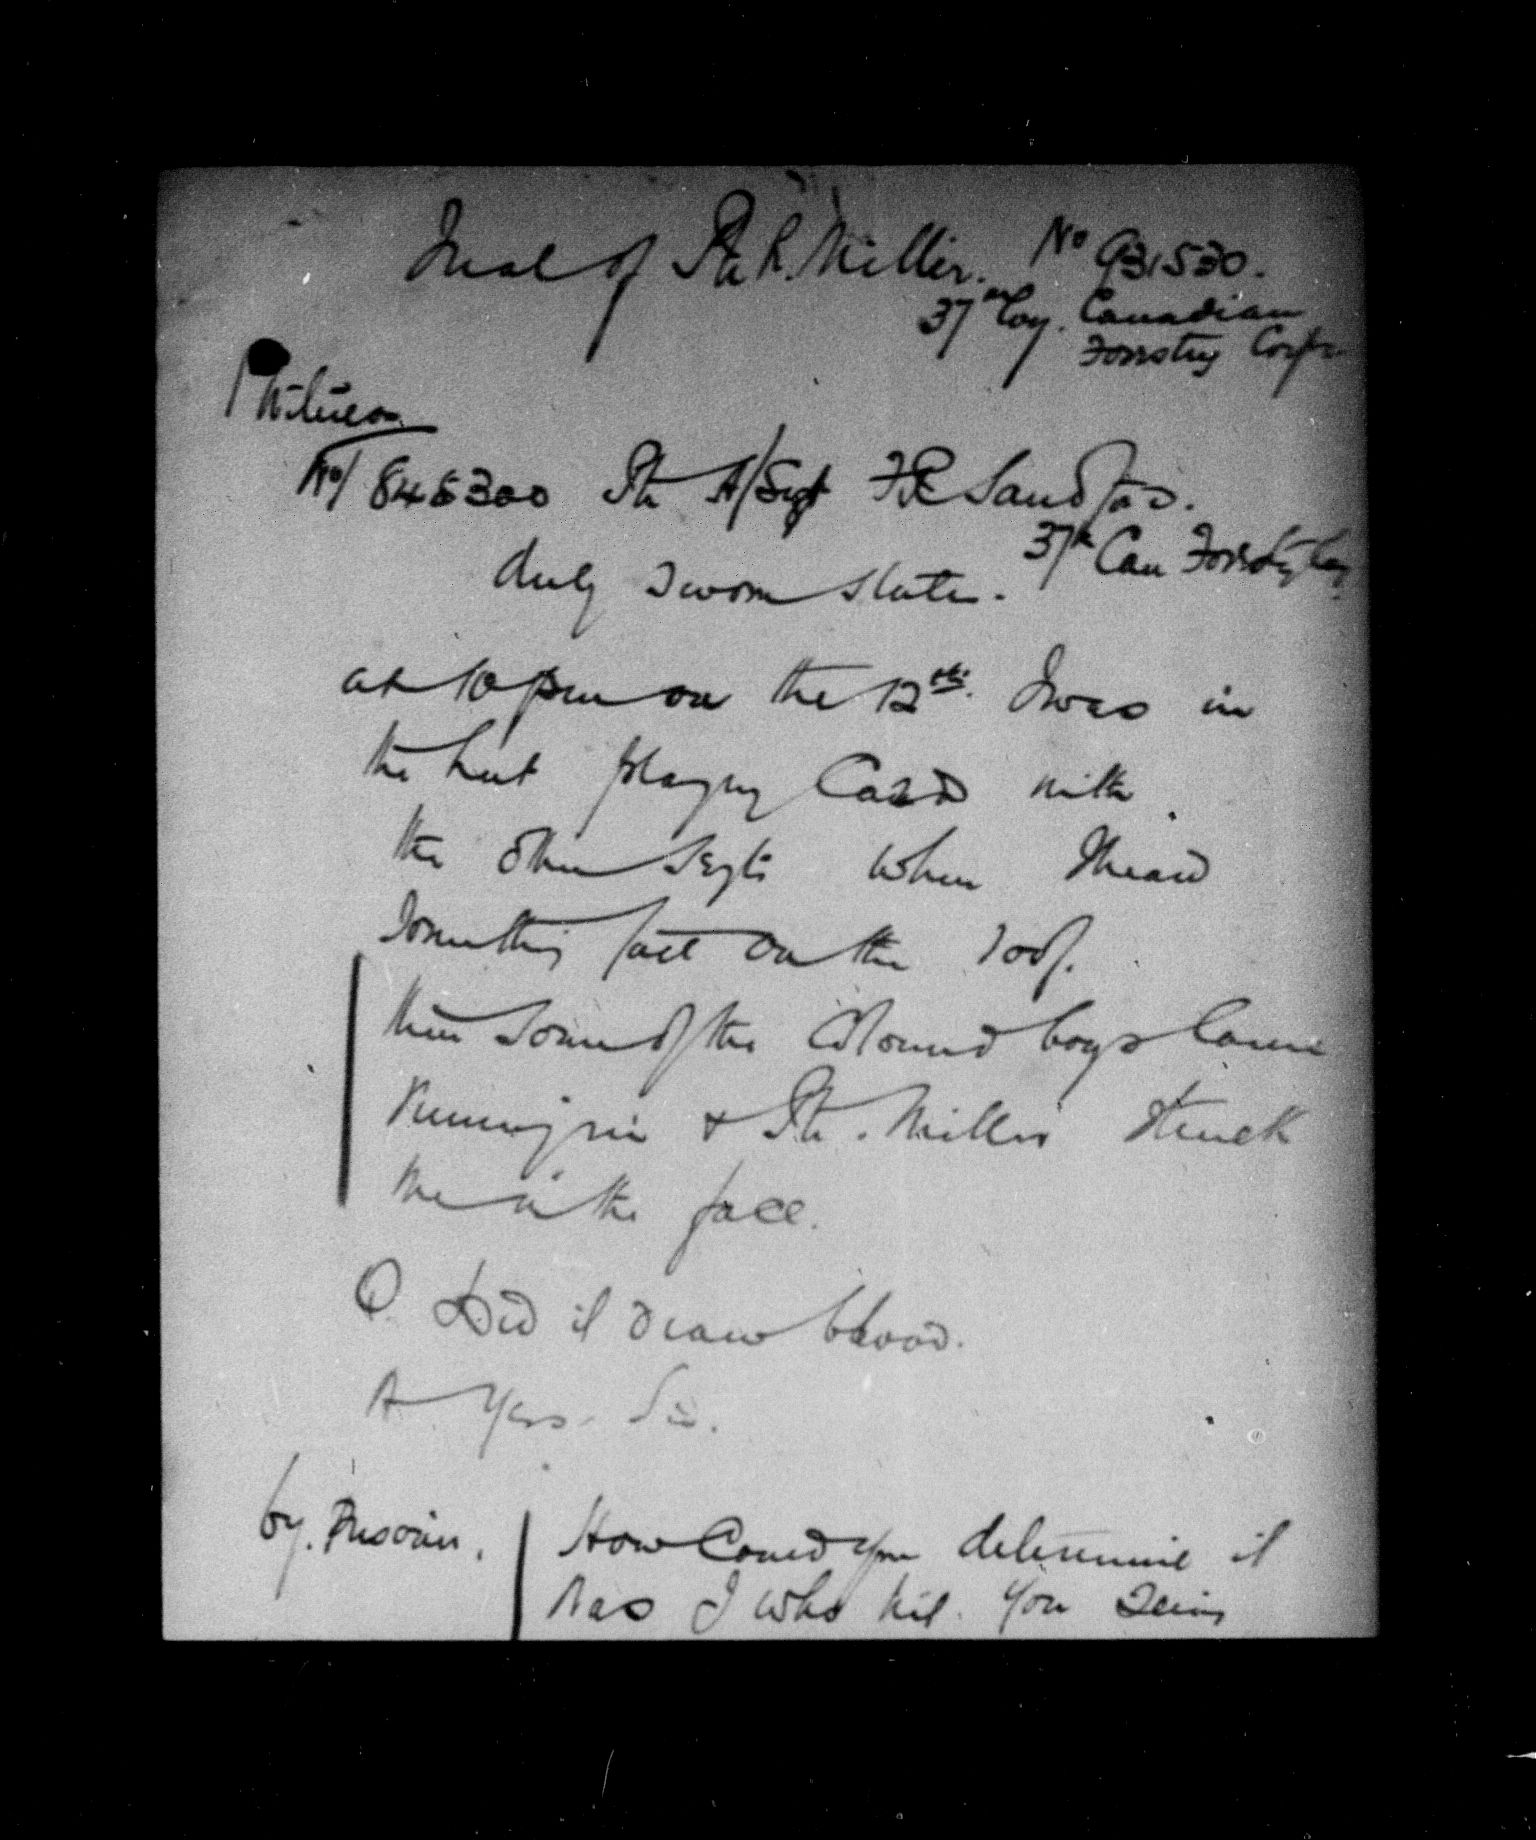 Trial of Pte R. Miller. No 931530.
37th Coy. Canadian
Forestry Corps
1st Witness
No/ 845300 Pte A/Sgt F.E. Sandford.
37th Can Forestry Coy
duly sworn states.
at 10 pm on the 12th. I was in
the hut playing Cards with
the other Sergts when I heard
Something fall on the roof.
then some of the Coloured boys came
running in & Pte. Miller struck
me in the face.
Q. Did it draw blood.
A Yes. Sir.
by. Prisoner. How Could you determine it
was I who hit you Seeing